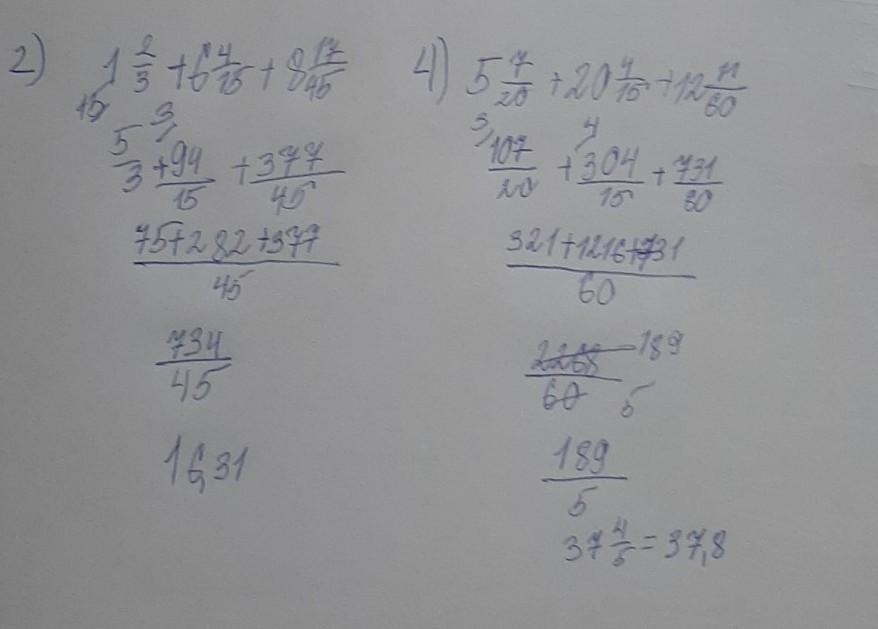 2) 1 2/3 + 6 4/15 + 8 17/45
15 3
5/3 + 94/15 + 377/45
75+282+377/45
734/45
16,31
4) 5 7/20 + 20 4/15 + 12 11/60
3 4
107/20 + 304/15 + 731/60
321+1216+731/60
2268/60 189/5
189/5
37 4/5 = 37,8